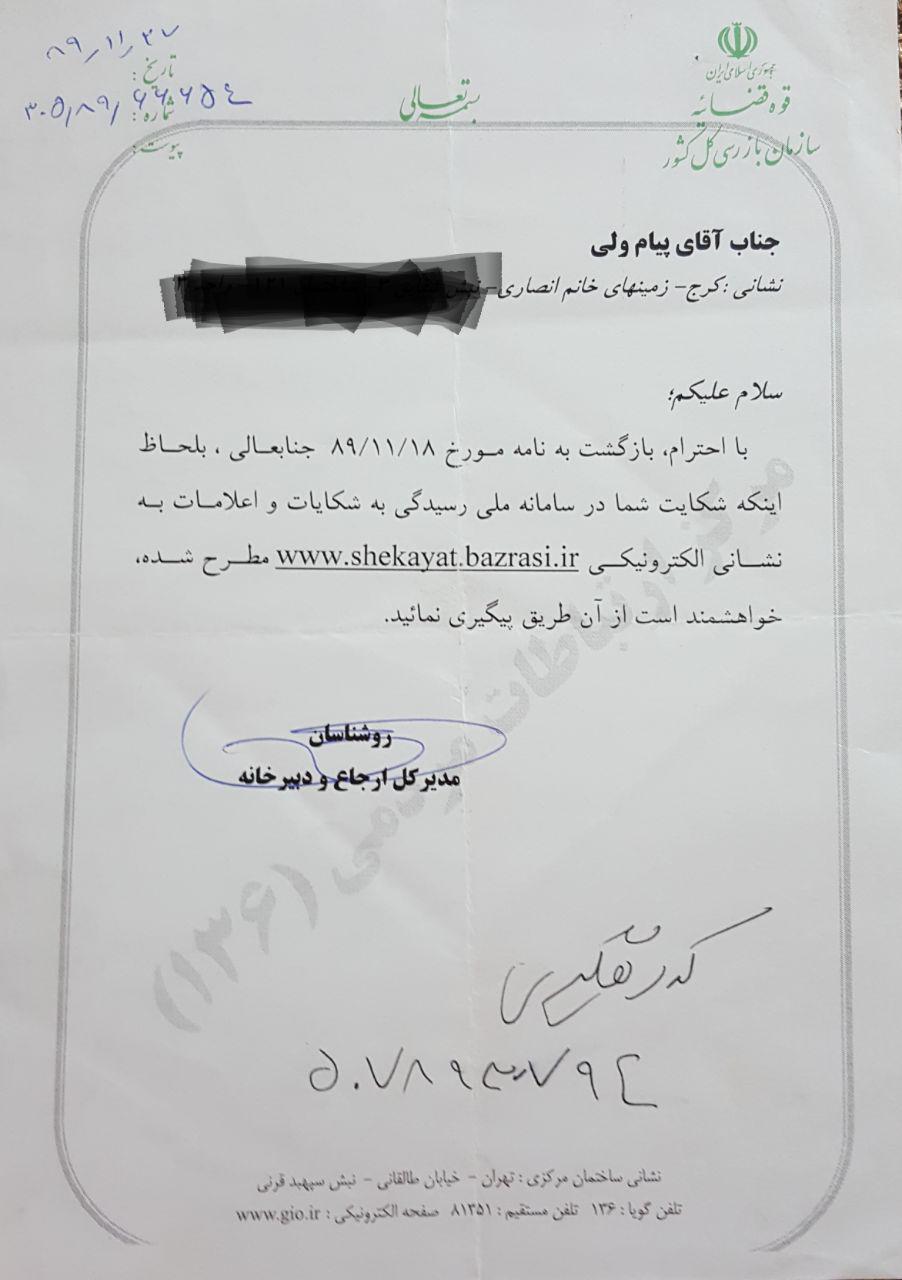 بسمه تعالی
جمهوری اسلامی ایران
قوه قضائیه
سازمان بازرسی کل کشور
تاریخ: ۸۹/۱۱/۲۷
شماره: ۳۰۵/۸۹/۶۶۶۵۴
پیوست:
جناب آقای پیام ولی
نشانی :کرج- زمینهای خانم انصاری-
سلام علیکم؛
با احترام، بازگشت به نامه مورخ ۸۹/۱۱/۱۸ جنابعالی ، بلحاظ
اینکه شکایت شما در سامانه ملی رسیدگی به شکایات و اعلامات به
نشانی الکترونیکی www.shekayat.bazrasi.ir مطرح شده،
خواهشمند است از آن طریق پیگیری نمائید.
روشناسان
مدیرکل ارجاع و دبیرخانه
مرکز ارتباطات مردمی (۱۳۶)
کد رهگیری
۵۰۷۸۹۳۷۹۴
نشانی ساختمان مرکزی : تهران - خیابان طالقانی - نبش سپهبد قرنی
تلفن گویا : ۱۳۶ تلفن مستقیم : ۸۱۳۵۱ صفحه الکترونیکی : www.gio.ir